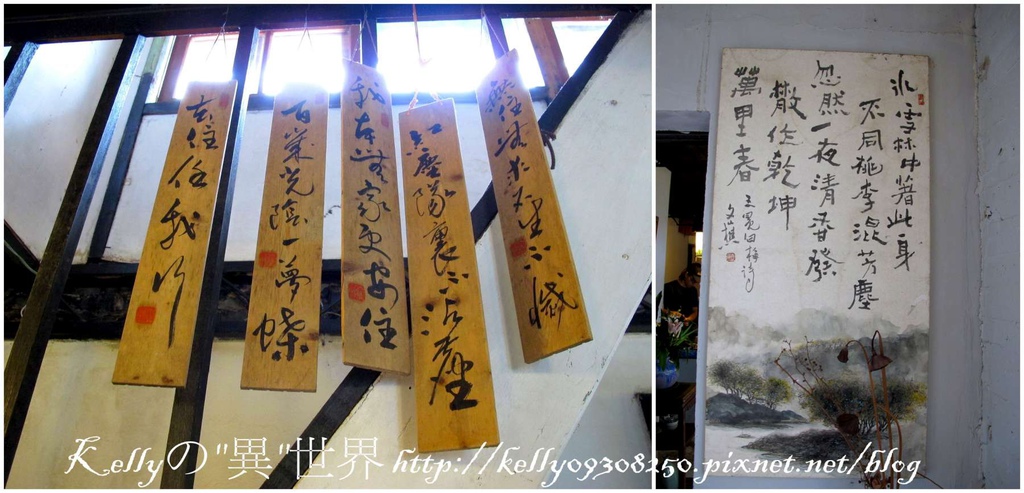 去住任我行
百歲光陰一夢蝶
我本無家更安住
紅塵隊裏不沾塵
冰雪林中著此身
不同桃李混芳塵
忽然一夜清香發
散作乾坤
萬里春
王冕田梅詩
文謙
Kellyの"異"世界 http://kelly09308250.pixnet.net/blog